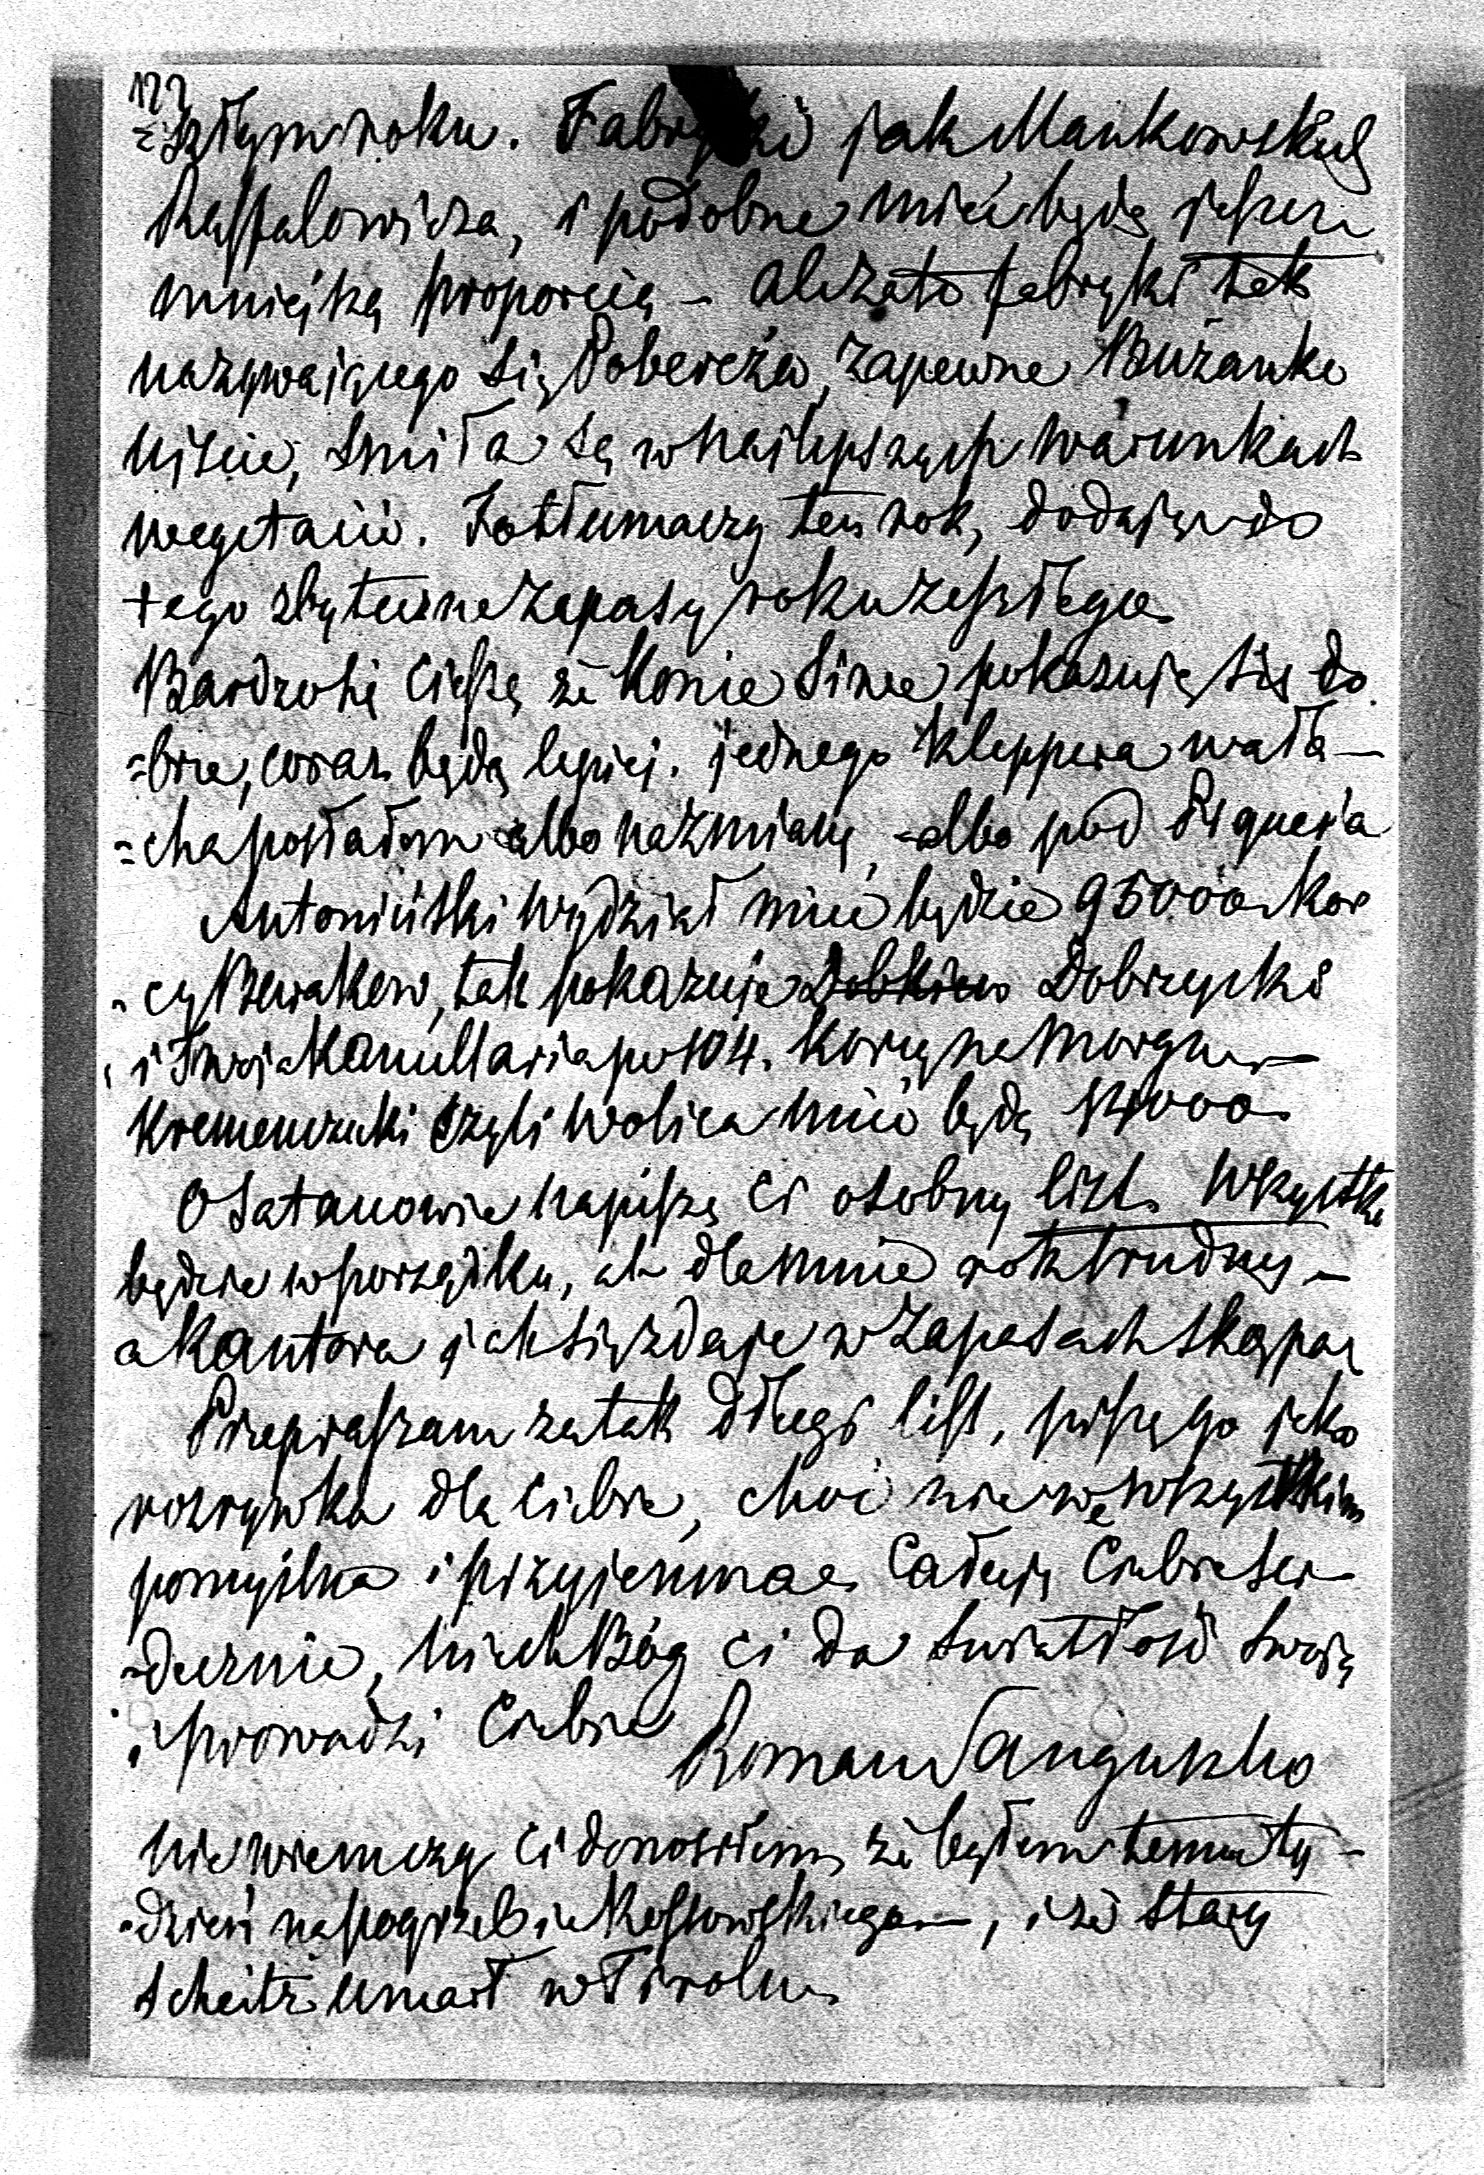 122
=szłym roku. Fabryki jak Mańkowskich
Raffalowicza, i podobne mieć będą jeszcze
mniejszą proporcią - ale zato fabryki tak
nazywaiącego się Pobereża, zapewne Bużanka
Ujście, Smiła są w najlepszych warunkach
wegetacii. To tłumaczy ten rok, dodając do
tego zbyteczne zapasy roku zeszłego
Bardzo się cieszę że konie siwe pokazują się do
=brze, coraz będą lepiej. jednego kleppera wała-
=cha posłałem albo na zmianę, albo pod Piquera
Antoniński wydział mieć będzie 95000 kor
-cy Buraków, tak pokazuje Dobrzycki
i Twoja Kancellaria po 104. korcy na morgu -
Kremenczuki czyli Wolica mieć będą 14000
O Satanowie napiszę ci osobny list. Wszystko
będzie w porządku, ale dla mnie rok trudny -
a Kantora jak się zdaje w zapasach skąpa
Przepraszam za tak długi list, piszę go jako
rozrywka dla Ciebie, choć nie we wszystkim
pomyślna i przyjemna. Całuję Ciebie ser
-decznie, niech Bóg ci da światłość swoją
i prowadzi Ciebie
Roman Sanguszko
Nie wiem czy ci donosiłem że byłem temu ty-
-dzień na pogrzebie Kossowskiego -, i że stary
Scheitz umarł w Tirolu